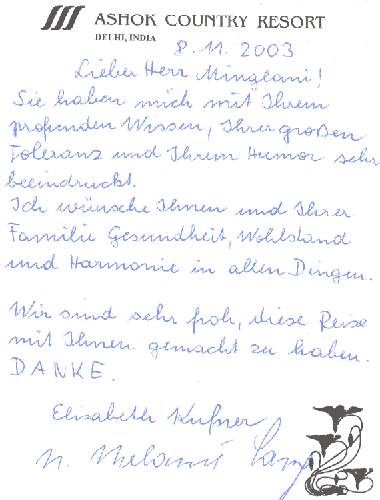 ASHOK COUNTRY RESORT
DELHI, INDIA
8.11.2003
Lieber Herr Minglani!
Sie haben mich mit Ihrem
profunden Wissen, Ihrer großen
Toleranz und Ihrem Humor sehr
beeindruckt.
Ich wünsche Ihnen und Ihrer
Familie Gesundheit, Wohlstand
und Harmonie in allen Dingen.
Wir sind sehr froh, diese Reise
mit Ihnen gemacht zu haben.
DANKE.
Elisabeth Kufner